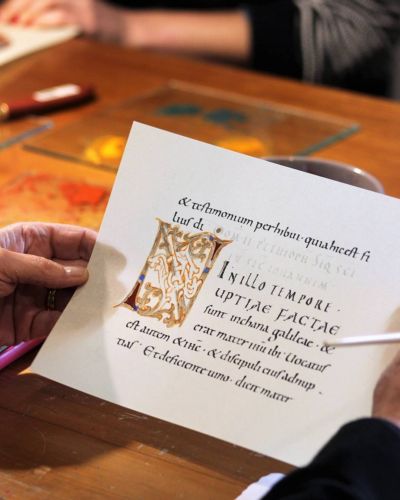 & testimonium perhibui · quia hic est fi
lius di
IN ILLO TEMPORE ·
UPTIAE FACTAE
sunt in chana galileae · &
erat mater ihu ibi · Vocatus
est autem & ihc · & discipuli eius ad nup
tias · Et deficiente uino · dicit mater